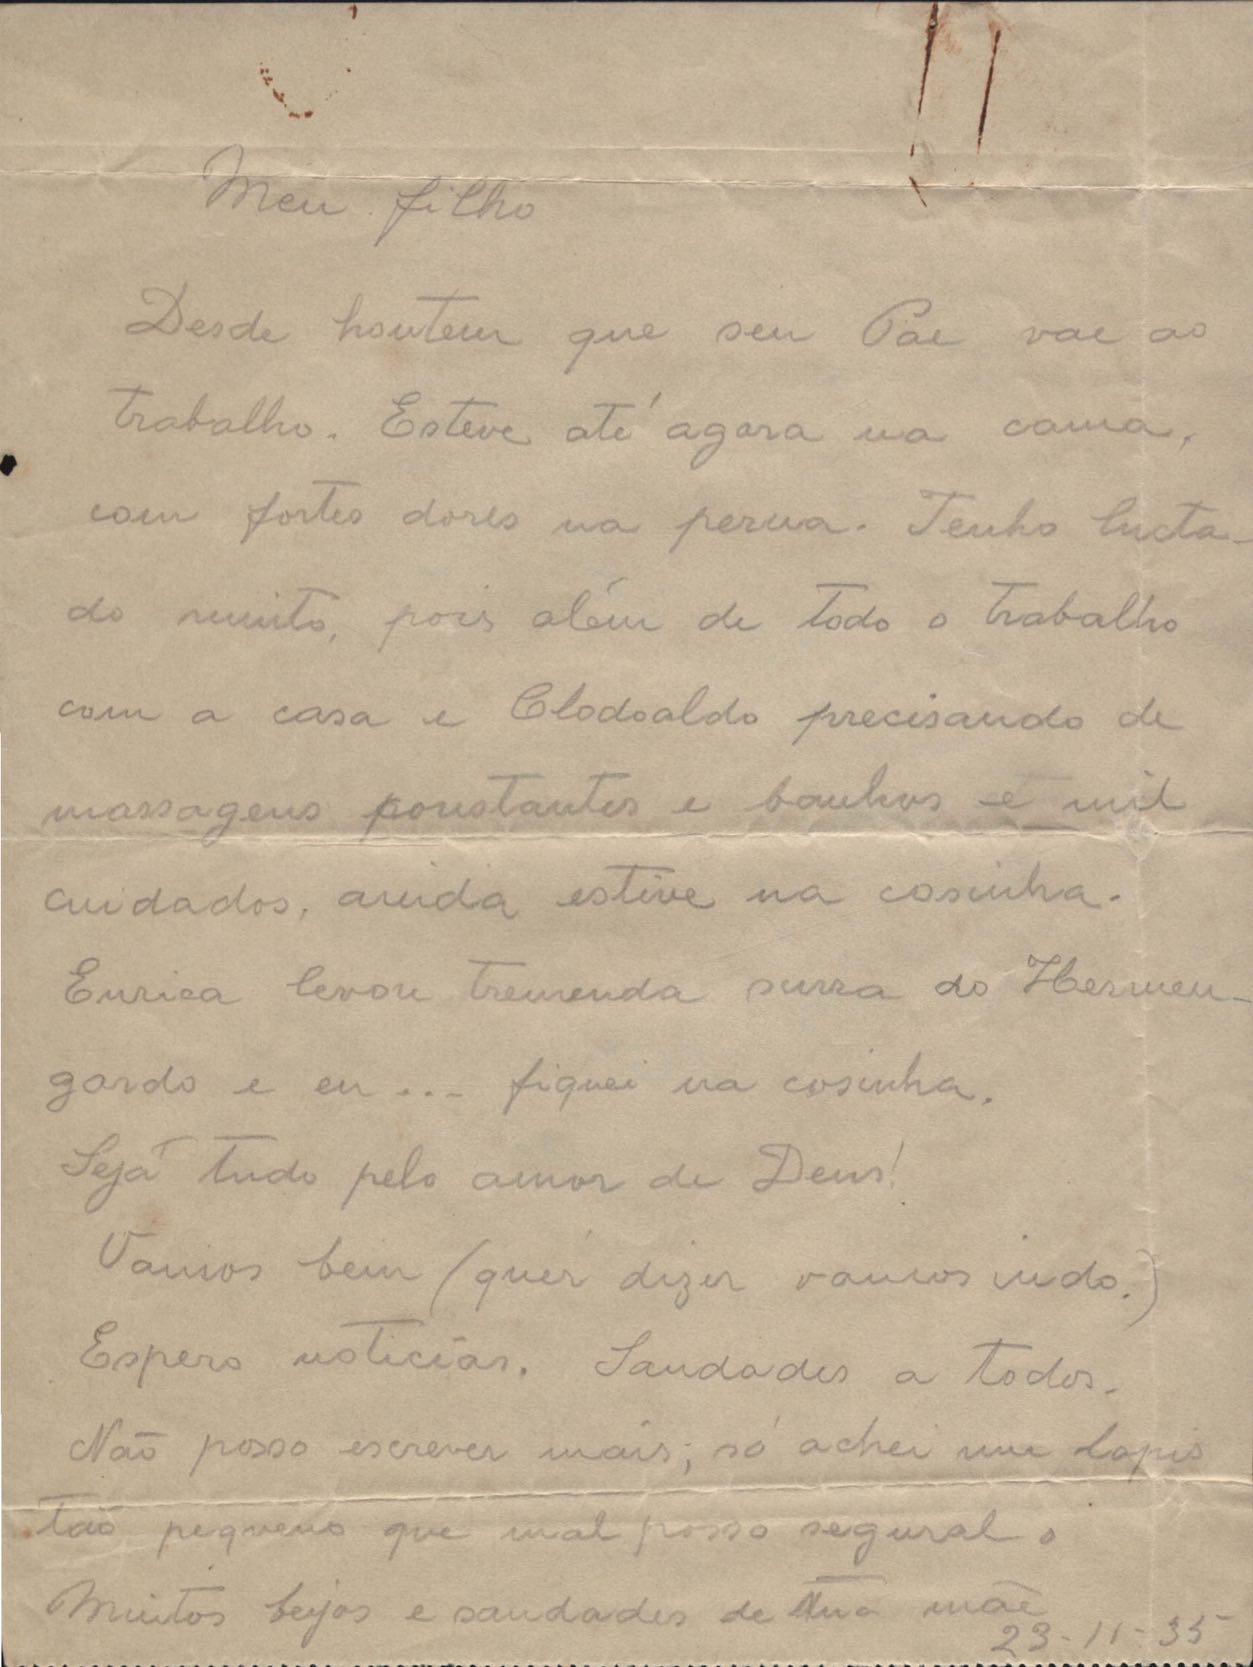 Meu filho
Desde hontem que seu Pae vae ao
trabalho. Esteve até agora na cama,
com fortes dores na perna. Tenho lucta-
do muito, pois além de todo o trabalho
com a casa e Clodoaldo precisando de
massagens constantes e banhos e mil
cuidados, ainda estive na cosinha.
Eurica levou tremenda surra do Hermen-
gardo e eu... fiquei na cosinha.
Seja tudo pelo amor de Deus!
Vamos bem (quer dizer vamos indo.)
Espero noticias. Saudades a todos.
Não posso escrever mais; só achei um lapis
tão pequeno que mal posso segural o
Muitos beijos e saudades de tua mãe
23-11-35